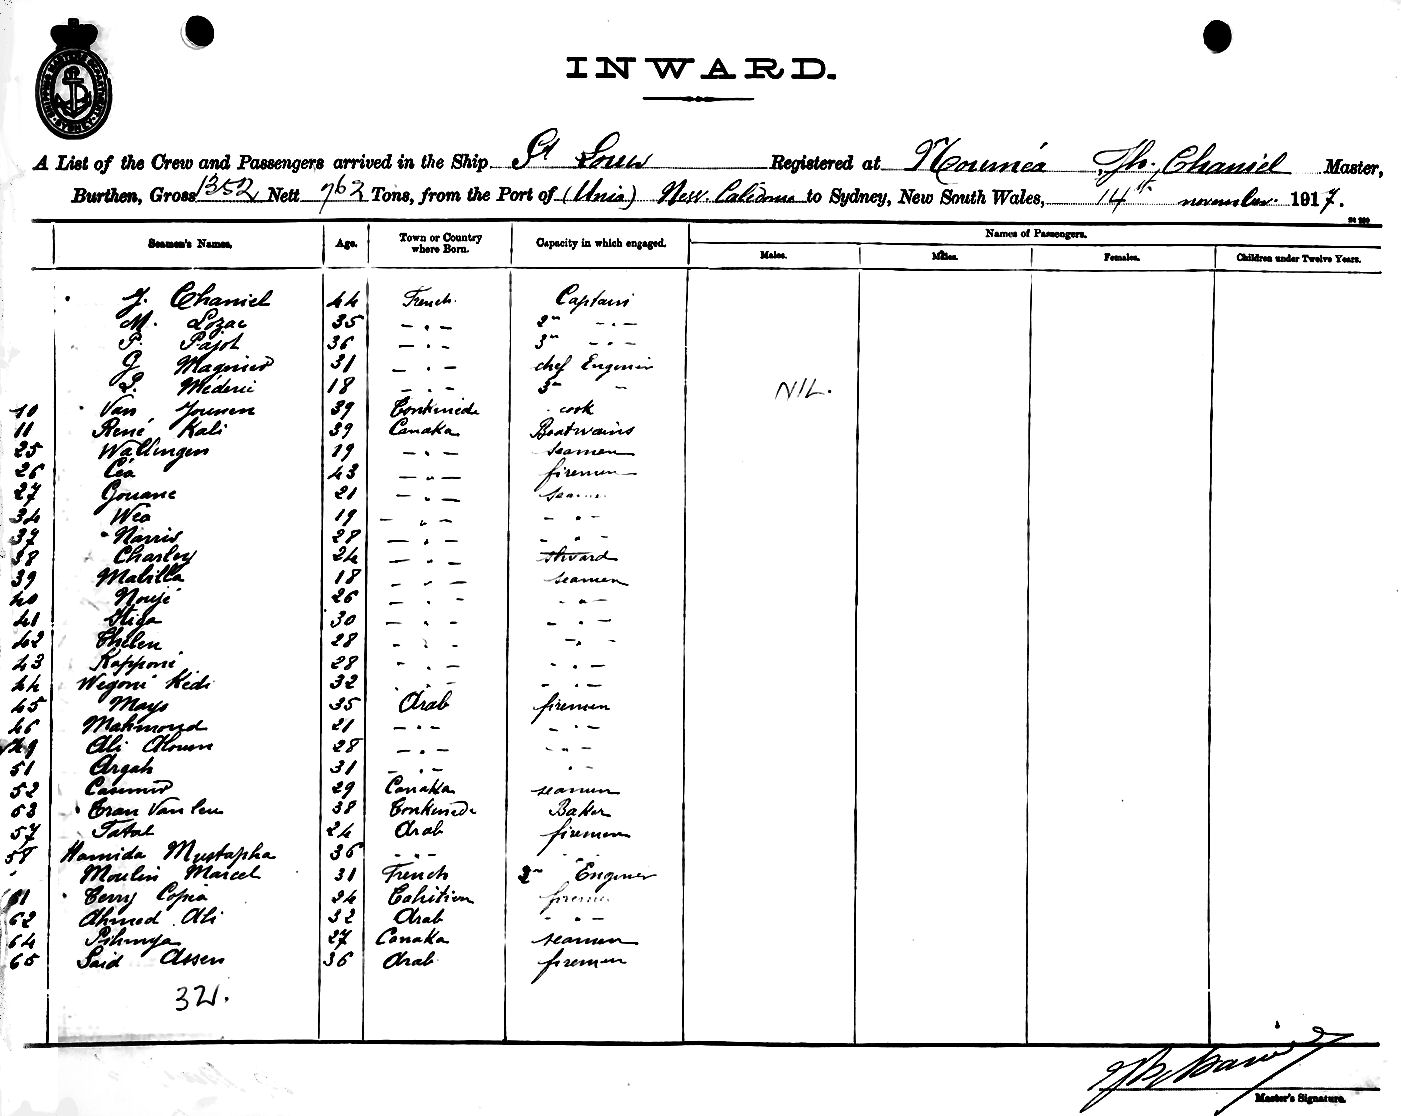 SHIPPING MASTER'S DEPARTMENT SYDNEY
INWARD.
A List of the Crew and Passengers arrived in the Ship St Louis Registered at Nouméa Th. Chaniel Master,
Burthen, Gross 1352 Nett 762 Tons, from the Port of (Unia) New. Calédonia to Sydney, New South Wales, 14th november 1917.
Seamen's Names. Age. Town or Country where Born. Capacity in which engaged. Names of Passengers.
Males. Males. Females. Children under Twelve Years.
J. Chaniel 44 French Captain
M. Lozac 35 — . — 2nd — . —
P. Pajot 36 — . — 3rd — . —
G Magnier 31 — . — chef Enginer
L. Méderic 18 — . — 3rd —
NIL.
10 Van 39 Tonkinede cook
11 René Kali 39 Canaka Boatwains
25 Wallingen 19 — . — seamen
26 Céa 43 — . — firemen
27 Gouane 21 — . — seamen
34 Wéa 19 — . — — . —
37 Narris 28 — . — — . —
38 Charley 24 — . — stivard
39 Malilla 18 — . — seamen
40 Noujé 26 — . — — . —
41 30 — . — — . —
42 Thelen 28 — . — — . —
43 Kapponé 28 — . — — . —
44 Wegoné Kedi 32 — . — — . —
45 Mays 35 Arab firemen
46 Mahmoud 21 — . — — . —
49 Ali 28 — . — — . —
51 Argah 31 — . — — . —
52 Casimir 29 Canaka seamen
53 Tran Van leu 38 Tonkinede Baker
57 Tatal 24 Arab firemen
58 Hamida Mustapha 36 — . — — . —
Moulin Marcel 31 French 2nd Enginer
61 Terry Copia 24 Tahitien firemen
62 Ahmed Ali 32 Arab — . —
64 Pihmya 27 Canaka seamen
65 Said Assen 36 Arab firemen
32.
Master's Signature.